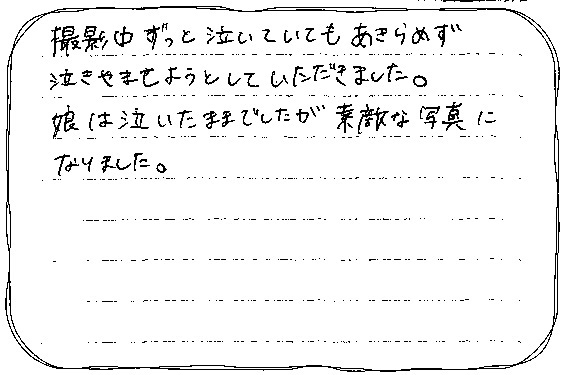 撮影中ずっと泣いていてもあきらめず
泣きやませようとしていただきました。
娘は泣いたままでしたが素敵な写真に
なりました。